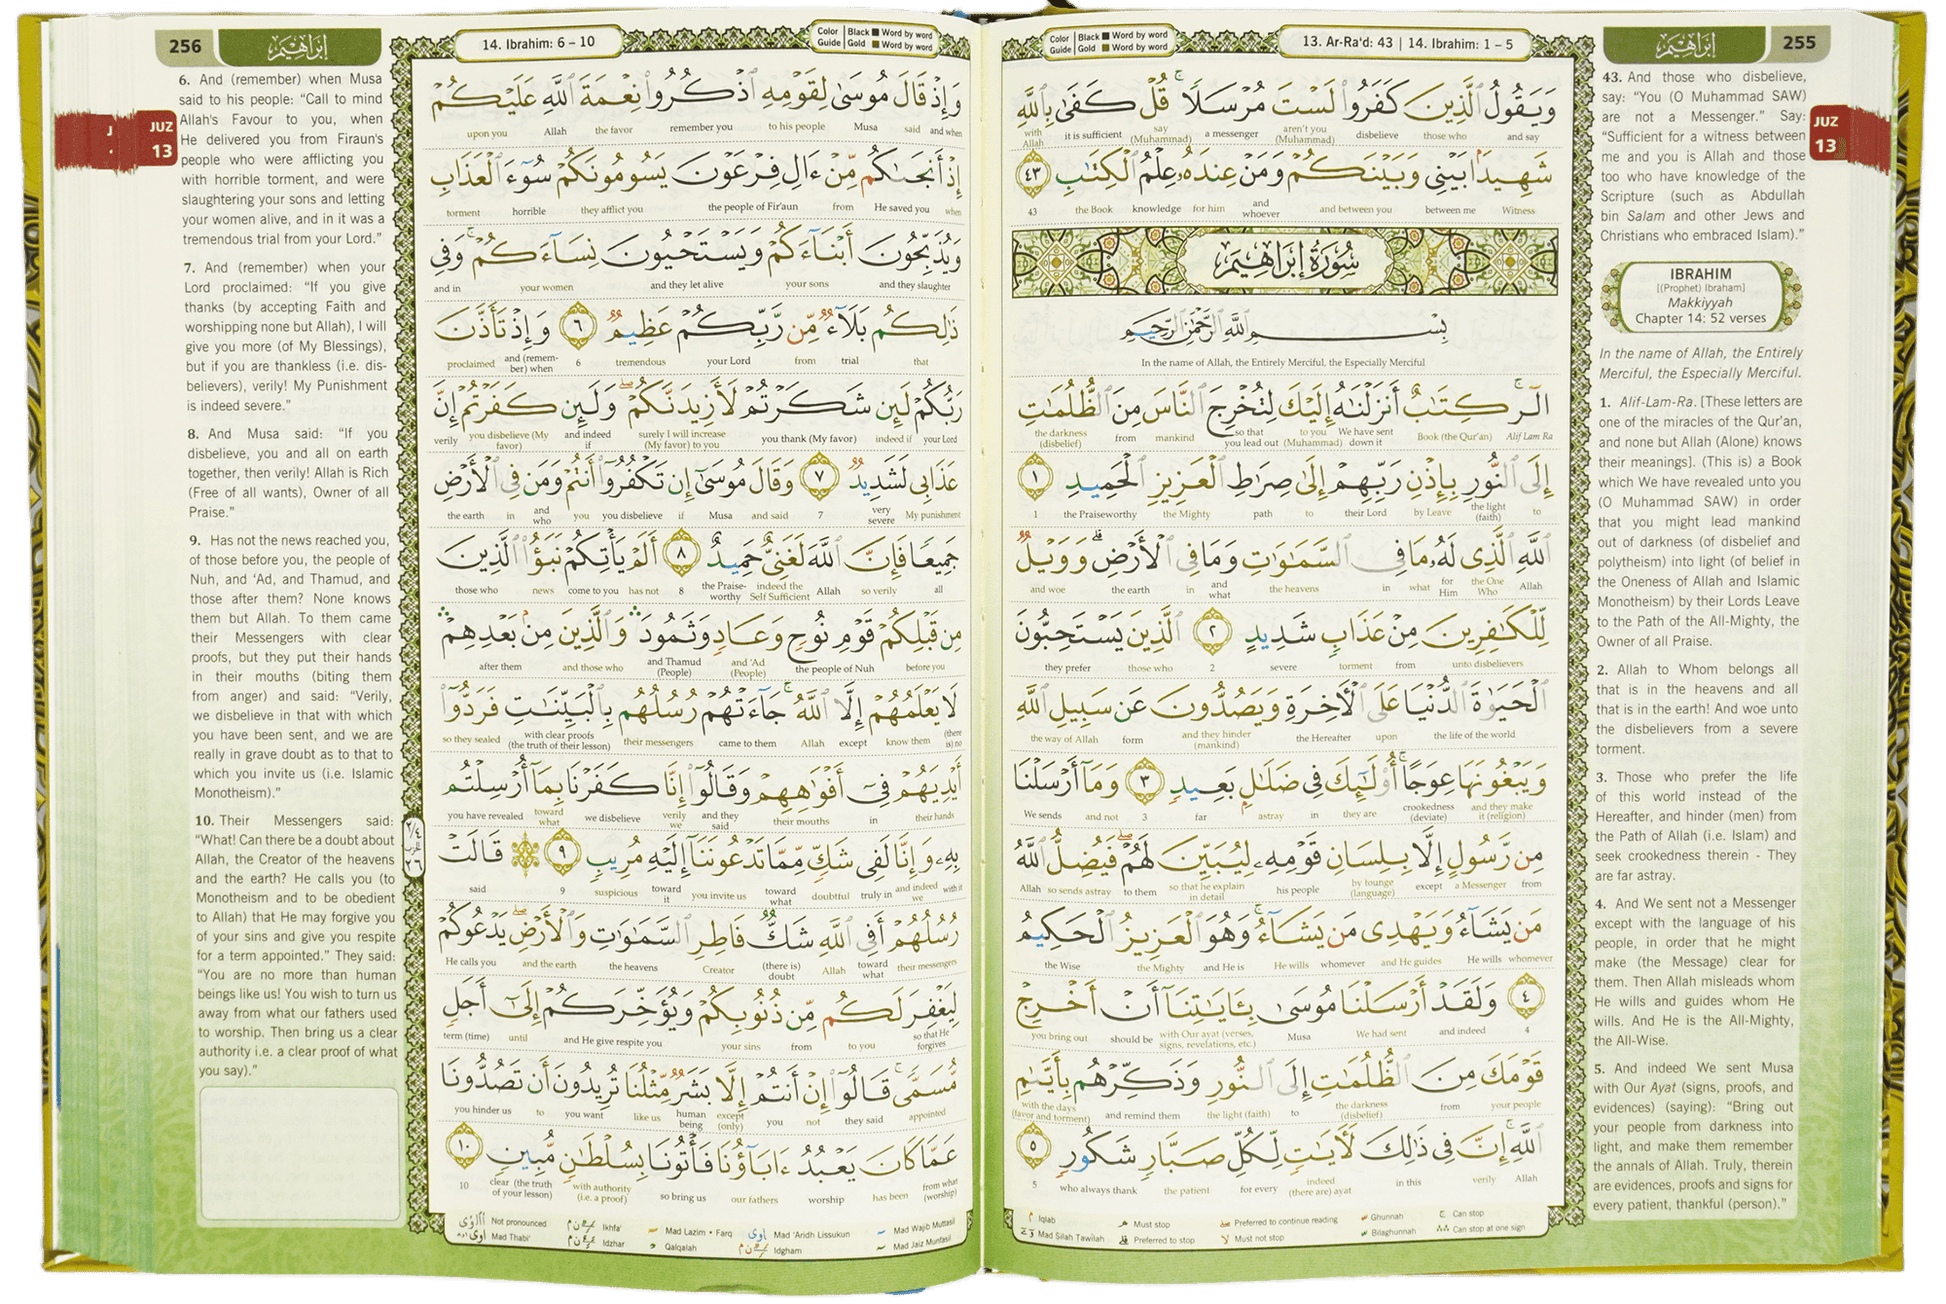 255
إبراهيم
13. Ar-Ra'd: 43 | 14. Ibrahim: 1 – 5
Color Guide | Black ■ Word by word
Gold ■ Word by word
JUZ
13
وَيَقُولُ ٱلَّذِينَ كَفَرُوا۟ لَسْتَ مُرْسَلًا ۚ قُلْ كَفَىٰ بِٱللَّهِ
with Allah it is sufficient say (Muhammad) a messenger aren't you (Muhammad) disbelieve those who and say
شَهِيدًۢا بَيْنِى وَبَيْنَكُمْ وَمَنْ عِندَهُۥ عِلْمُ ٱلْكِتَٰبِ ٤٣
43 the Book knowledge for him and whoever and between you between me Witness
سُورَةُ إِبْرَاهِيمَ
بِسْمِ ٱللَّهِ ٱلرَّحْمَٰنِ ٱلرَّحِيمِ
In the name of Allah, the Entirely Merciful, the Especially Merciful
الٓر ۚ كِتَٰبٌ أَنزَلْنَٰهُ إِلَيْكَ لِتُخْرِجَ ٱلنَّاسَ مِنَ ٱلظُّلُمَٰتِ
the darkness (disbelief) from mankind so that you lead out to you (Muhammad) We have sent down it Book (the Qur'an) Alif Lam Ra
إِلَى ٱلنُّورِ بِإِذْنِ رَبِّهِمْ إِلَىٰ صِرَٰطِ ٱلْعَزِيزِ ٱلْحَمِيدِ ١
1 the Praiseworthy the Mighty path to their Lord by Leave the light (faith) to
ٱللَّهِ ٱلَّذِى لَهُۥ مَا فِى ٱلسَّمَٰوَٰتِ وَمَا فِى ٱلْأَرْضِ ۗ وَوَيْلٌ
and woe the earth in and what the heavens in what for Him the One Who Allah
لِّلْكَٰفِرِينَ مِنْ عَذَابٍ شَدِيدٍ ٢ ٱلَّذِينَ يَسْتَحِبُّونَ
they prefer those who 2 severe torment from unto disbelievers
ٱلْحَيَوٰةَ ٱلدُّنْيَا عَلَى ٱلْءَاخِرَةِ وَيَصُدُّونَ عَن سَبِيلِ ٱللَّهِ
the way of Allah form and they hinder (mankind) the Hereafter upon the life of the world
وَيَبْغُونَهَا عِوَجًا ۚ أُو۟لَٰٓئِكَ فِى ضَلَٰلٍۭ بَعِيدٍ ٣ وَمَآ أَرْسَلْنَا
We sends and not 3 far astray in they are crookedness (deviate) and they make it (religion)
مِن رَّسُولٍ إِلَّا بِلِسَانِ قَوْمِهِۦ لِيُبَيِّنَ لَهُمْ ۖ فَيُضِلُّ ٱللَّهُ
Allah so sends astray to them so that he explain in detail his people by tounge (language) except a Messenger from
مَن يَشَآءُ وَيَهْدِى مَن يَشَآءُ ۚ وَهُوَ ٱلْعَزِيزُ ٱلْحَكِيمُ
the Wise the Mighty and He is He wills whomever and He guides He wills whomever
٤ وَلَقَدْ أَرْسَلْنَا مُوسَىٰ بِـَٔايَٰتِنَآ أَنْ أَخْرِجْ
you bring out should be with Our ayat (verses, signs, revelations, etc.) Musa We had sent and indeed 4
قَوْمَكَ مِنَ ٱلظُّلُمَٰتِ إِلَى ٱلنُّورِ وَذَكِّرْهُم بِأَيَّىٰمِ
with the days (favor and torment) and remind them the light (faith) to the darkness (disbelief) from your people
ٱللَّهِ ۚ إِنَّ فِى ذَٰلِكَ لَءَايَٰتٍ لِّكُلِّ صَبَّارٍ شَكُورٍ ٥
5 who always thank the patient for every indeed (there are) ayat in this verily Allah
Iqlab Must stop Preferred to continue reading Ghunnah Can stop
Mad Silah Tawilah Preferred to stop Must not stop Bilaghunnah Can stop at one sign
43. And those who disbelieve,
say: “You (O Muhammad SAW)
are not a Messenger.” Say:
“Sufficient for a witness between
me and you is Allah and those
too who have knowledge of the
Scripture (such as Abdullah
bin Salam and other Jews and
Christians who embraced Islam).”
IBRAHIM
[(Prophet) Ibraham]
Makkiyyah
Chapter 14: 52 verses
In the name of Allah, the Entirely
Merciful, the Especially Merciful.
1. Alif-Lam-Ra. [These letters are
one of the miracles of the Qur'an,
and none but Allah (Alone) knows
their meanings]. (This is) a Book
which We have revealed unto you
(O Muhammad SAW) in order
that you might lead mankind
out of darkness (of disbelief and
polytheism) into light (of belief in
the Oneness of Allah and Islamic
Monotheism) by their Lords Leave
to the Path of the All-Mighty, the
Owner of all Praise.
2. Allah to Whom belongs all
that is in the heavens and all
that is in the earth! And woe unto
the disbelievers from a severe
torment.
3. Those who prefer the life
of this world instead of the
Hereafter, and hinder (men) from
the Path of Allah (i.e. Islam) and
seek crookedness therein - They
are far astray.
4. And We sent not a Messenger
except with the language of his
people, in order that he might
make (the Message) clear for
them. Then Allah misleads whom
He wills and guides whom He
wills. And He is the All-Mighty,
the All-Wise.
5. And indeed We sent Musa
with Our Ayat (signs, proofs, and
evidences) (saying): “Bring out
your people from darkness into
light, and make them remember
the annals of Allah. Truly, therein
are evidences, proofs and signs for
every patient, thankful (person).”
256
إبراهيم
14. Ibrahim: 6 – 10
Color Guide | Black ■ Word by word
Gold ■ Word by word
JUZ
13
وَإِذْ قَالَ مُوسَىٰ لِقَوْمِهِ ٱذْكُرُوا۟ نِعْمَةَ ٱللَّهِ عَلَيْكُمْ
upon you Allah the favor remember you to his people Musa said and when
إِذْ أَنجَىٰكُم مِّنْ ءَالِ فِرْعَوْنَ يَسُومُونَكُمْ سُوٓءَ ٱلْعَذَابِ
torment horrible they afflict you the people of Fir'aun from He saved you when
وَيُذَبِّحُونَ أَبْنَآءَكُمْ وَيَسْتَحْيُونَ نِسَآءَكُمْ ۚ وَفِى
and in your women and they let alive your sons and they slaughter
ذَٰلِكُم بَلَآءٌ مِّن رَّبِّكُمْ عَظِيمٌ ٦ وَإِذْ تَأَذَّنَ
proclaimed and (remember) when 6 tremendous your Lord from trial that
رَبُّكُمْ لَئِن شَكَرْتُمْ لَأَزِيدَنَّكُمْ ۖ وَلَئِن كَفَرْتُمْ إِنَّ
verily you disbelieve (My favor) and indeed if surely I will increase (My favor) to you you thank (My favor) indeed if your Lord
عَذَابِى لَشَدِيدٌ ٧ وَقَالَ مُوسَىٰٓ إِن تَكْفُرُوٓا۟ أَنتُمْ وَمَن فِى ٱلْأَرْضِ
the earth in and who you you disbelieve if Musa and said 7 very severe My punishment
جَمِيعًا فَإِنَّ ٱللَّهَ لَغَنِىٌّ حَمِيدٌ ٨ أَلَمْ يَأْتِكُمْ نَبَؤُا۟ ٱلَّذِينَ
those who news come to you has not 8 the Praise-worthy indeed the Self Sufficient Allah so verily all
مِن قَبْلِكُمْ قَوْمِ نُوحٍ وَعَادٍ وَثَمُودَ ۛ وَٱلَّذِينَ مِنۢ بَعْدِهِمْ ۛ
after them and those who and Thamud (People) and 'Ad (People) the people of Nuh before you
لَا يَعْلَمُهُمْ إِلَّا ٱللَّهُ ۚ جَآءَتْهُمْ رُسُلُهُم بِٱلْبَيِّنَٰتِ فَرَدُّوٓا۟
so they sealed with clear proofs (the truth of their lesson) their messengers came to them Allah except know them (there is) no
أَيْدِيَهُمْ فِىٓ أَفْوَٰهِهِمْ وَقَالُوٓا۟ إِنَّا كَفَرْنَا بِمَآ أُرْسِلْتُم
you have revealed toward what we disbelieve verily we and they said their mouths in their hands
بِهِۦ وَإِنَّا لَفِى شَكٍّ مِّمَّا تَدْعُونَنَآ إِلَيْهِ مُرِيبٍ ٩ قَالَتْ
said 9 suspicious toward it you invite us toward what doubtful truly in and indeed we with it
رُسُلُهُمْ أَفِى ٱللَّهِ شَكٌّ فَاطِرِ ٱلسَّمَٰوَٰتِ وَٱلْأَرْضِ ۖ يَدْعُوكُمْ
He calls you and the earth the heavens Creator (there is) doubt Allah toward what their messengers
لِيَغْفِرَ لَكُم مِّن ذُنُوبِكُمْ وَيُؤَخِّرَكُمْ إِلَىٰٓ أَجَلٍ
term (time) until and He give respite you your sins from to you so that He forgives
مُّسَمًّى ۚ قَالُوٓا۟ إِنْ أَنتُمْ إِلَّا بَشَرٌ مِّثْلُنَا تُرِيدُونَ أَن تَصُدُّونَا
you hinder us to you want like us human being except (only) you not they said appointed
عَمَّا كَانَ يَعْبُدُ ءَابَآؤُنَا فَأْتُونَا بِسُلْطَٰنٍ مُّبِينٍ ١٠
10 clear (the truth of your lesson) with authority (i.e. a proof) so bring us our fathers worship has been from what (worship)
Not pronounced Ikhfa' Mad Lazim • Farq Mad 'Aridh Lissukun Mad Wajib Muttasil
Mad Thabi' Idzhar Qalqalah Idgham Mad Jaiz Munfasil
6. And (remember) when Musa
said to his people: “Call to mind
Allah's Favour to you, when
He delivered you from Firaun's
people who were afflicting you
with horrible torment, and were
slaughtering your sons and letting
your women alive, and in it was a
tremendous trial from your Lord.”
7. And (remember) when your
Lord proclaimed: “If you give
thanks (by accepting Faith and
worshipping none but Allah), I will
give you more (of My Blessings),
but if you are thankless (i.e. dis-
believers), verily! My Punishment
is indeed severe.”
8. And Musa said: “If you
disbelieve, you and all on earth
together, then verily! Allah is Rich
(Free of all wants), Owner of all
Praise.”
9. Has not the news reached you,
of those before you, the people of
Nuh, and ‘Ad, and Thamud, and
those after them? None knows
them but Allah. To them came
their Messengers with clear
proofs, but they put their hands
in their mouths (biting them
from anger) and said: “Verily,
we disbelieve in that with which
you have been sent, and we are
really in grave doubt as to that to
which you invite us (i.e. Islamic
Monotheism).”
10. Their Messengers said:
“What! Can there be a doubt about
Allah, the Creator of the heavens
and the earth? He calls you (to
Monotheism and to be obedient
to Allah) that He may forgive you
of your sins and give you respite
for a term appointed.” They said:
“You are no more than human
beings like us! You wish to turn us
away from what our fathers used
to worship. Then bring us a clear
authority i.e. a clear proof of what
you say).”